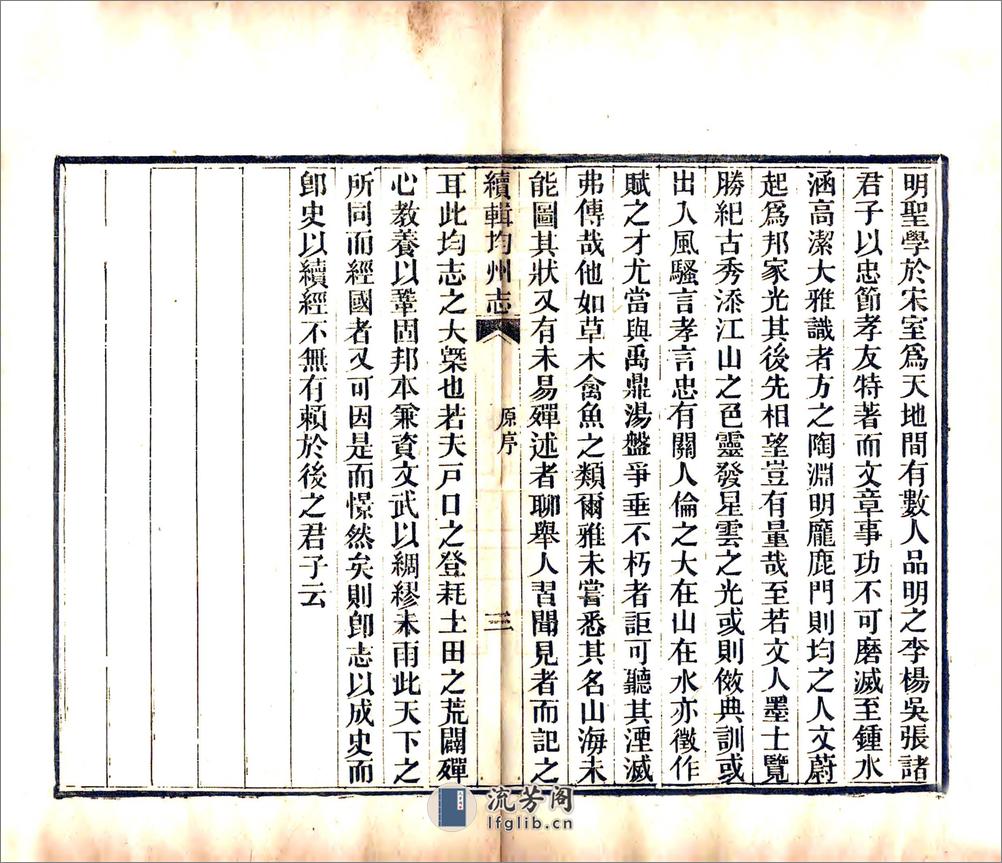 明聖學於宋室爲天地間有數人品明之李楊吳張諸
君子以忠節孝友特著而文章事功不可磨滅至鍾水
涵高潔大雅識者方之陶淵明龐鹿門則均之人文蔚
起爲邦家光其後先相望豈有量哉至若文人墨士覽
勝紀古秀添江山之色靈發星雲之光或則倣典訓或
出入風騷言孝言忠有關人倫之大在山在水亦徵作
賦之才尤當與禹鼎湯盤爭垂不朽者詎可聽其湮滅
弗傳哉他如草木禽魚之類爾雅未嘗悉其名山海未
能圖其狀又有未易殫述者聊舉人習聞見者而記之
續輯均州志
原序
三
耳此均志之大槩也若夫戸口之登耗土田之荒闢殫
心教養以鞏固邦本兼資文武以綢繆未雨此天下之
所同而經國者又可因是而憬然矣則卽志以成史而
卽史以續經不無有賴於後之君子云
流芳阁
lfglib.cn